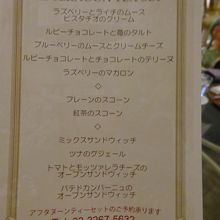 ラズベリーとライチのムース
ピスタチオのクリーム
ルビーチョコレートと苺のタルト
ブルーベリーのムースとクリームチーズ
ルビーチョコレートとチョコレートのテリーヌ
ラズベリーのマカロン
◇
プレーンのスコーン
紅茶のスコーン
◇
ミックスサンドウィッチ
ツナのグジェール
トマトとモッツァレラチーズの
オープンサンドウィッチ
パテドカンパーニュの
オープンサンドウィッチ
アフタヌーンティーセットのご予約承ります
03-3267-5632